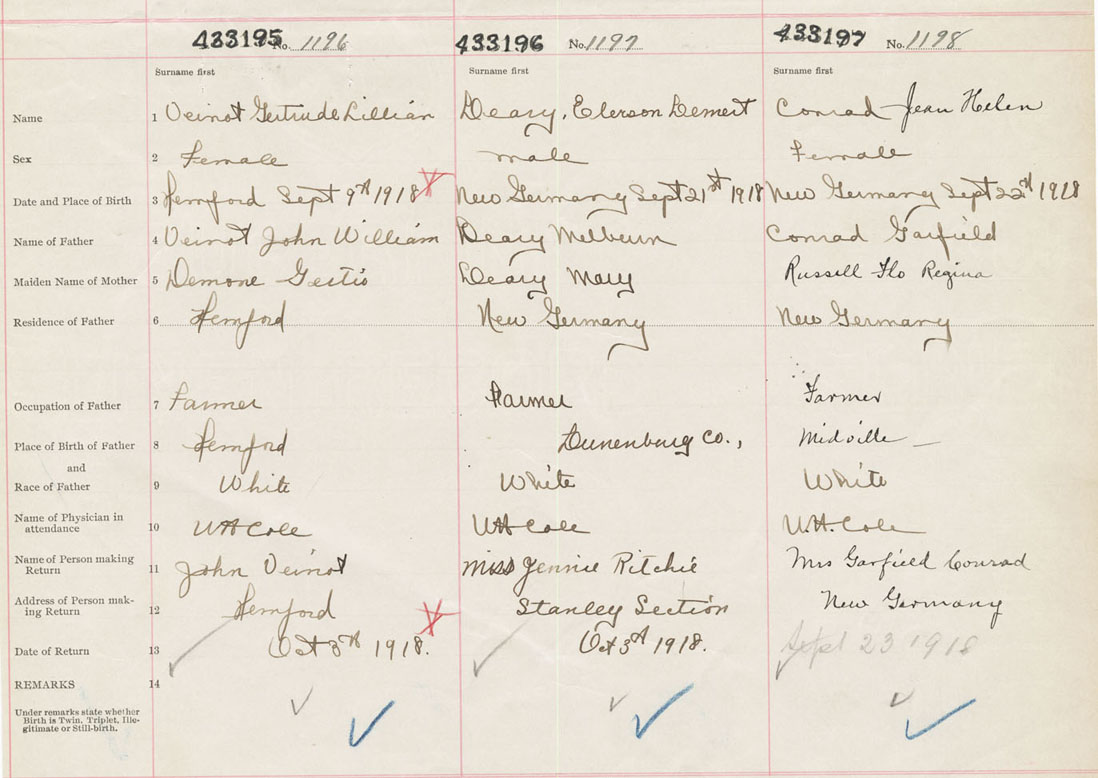 433195 No. 1196 433196 No. 1197 433197 No. 1198
Surname first Surname first Surname first
Name 1 Veinot Gertrude Lillian Deary, Elerson Demert Conrad Jean Helen
Sex 2 Female male Female
Date and Place of Birth 3 Hemford Sept 9th 1918 New Germany Sept 21st 1918 New Germany Sept 22nd 1918
Name of Father 4 Veinot John William Deary Melburn Conrad Garfield
Maiden Name of Mother 5 Demone Gestio Deary Mary Russell Flo Regina
Residence of Father 6 Hemford New Germany New Germany
Occupation of Father 7 Farmer Farmer Farmer
Place of Birth of Father 8 Hemford Lunenburg Co., Midville
and
Race of Father 9 White White White
Name of Physician in
attendance 10 W H Cole W H Cole W. H. Cole
Name of Person making
Return 11 John Veinot Miss Jennie Ritchie Mrs Garfield Conrad
Address of Person mak-
ing Return 12 Hemford Stanley Section New Germany
Date of Return 13 Oct 3rd 1918. Oct 3rd 1918. Sept 23 1918
REMARKS 14
Under remarks state whether
Birth is Twin, Triplet, Ille-
gitimate or Still-birth.